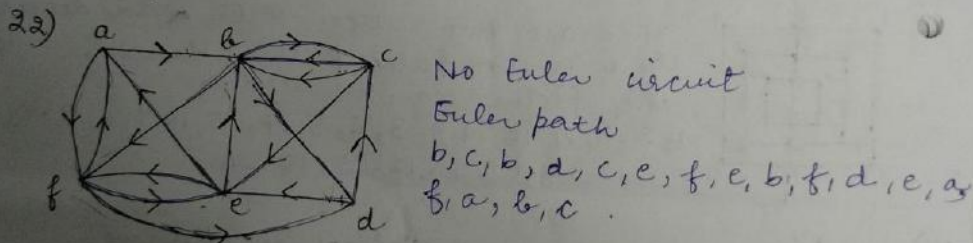 22)
a
b
c
f
e
d
No Euler circuit
Euler path
b, c, b, d, c, e, f, e, b, f, d, e, a,
f, a, b, c.